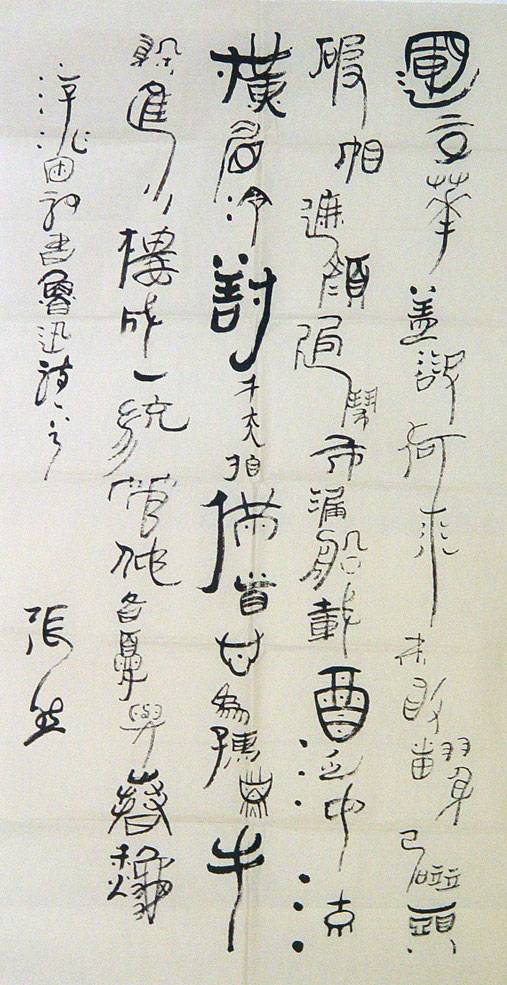 運交華蓋欲何求未敢翻身已碰頭
破帽遮顏過鬧市漏船載酒泛中流
橫眉冷對千夫指俯首甘為孺子牛
躲進小樓成一統管他冬夏與春秋
書魯迅詩
張